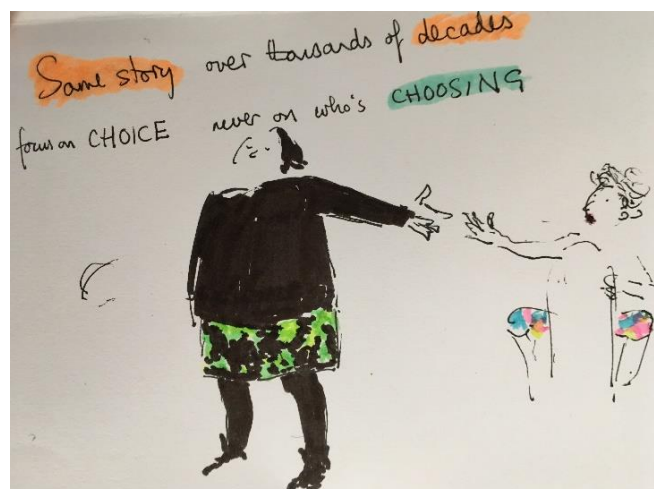 Same story over thousands of decades
focus on CHOICE never on who's CHOOSING